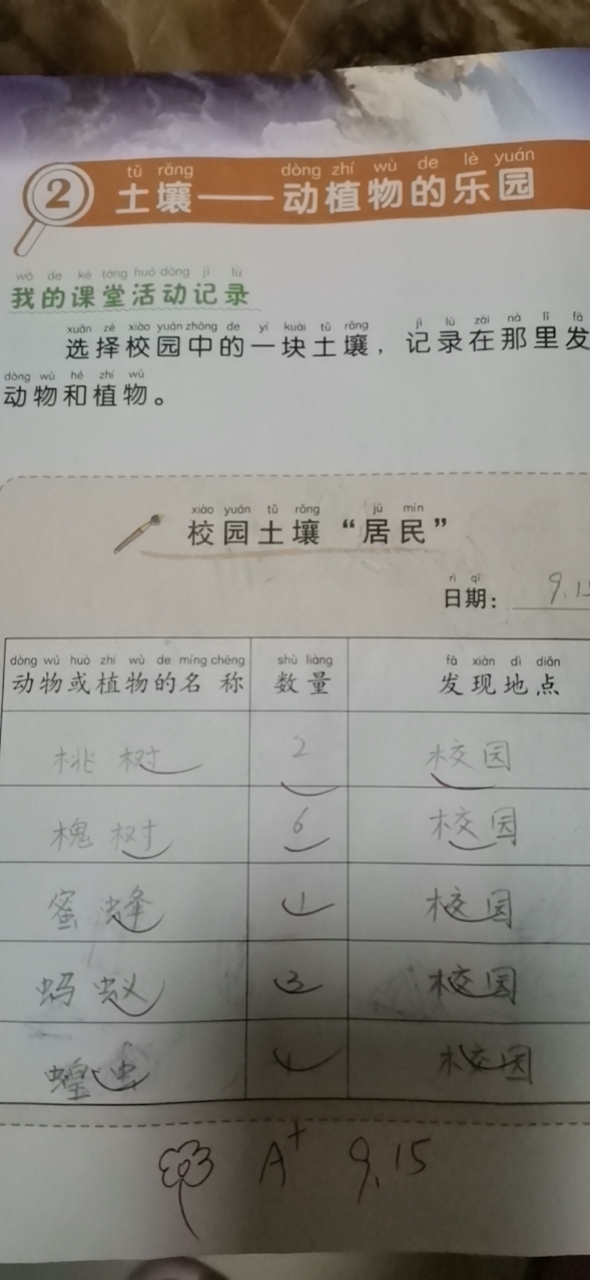 tǔ rǎng dòng zhí wù de lè yuán
2 土壤——动植物的乐园
wǒ de kè táng huó dòng jì lù
我的课堂活动记录
xuǎn zé xiào yuán zhōng de yí kuài tǔ rǎng jì lù zài nà lǐ fā
选择校园中的一块土壤，记录在那里发
dòng wù hé zhí wù
动物和植物。
xiào yuán tǔ rǎng jū mín
校园土壤“居民”
rì qī
日期：9.15
dòng wù huò zhí wù de míng chēng shù liàng fā xiàn dì diǎn
动物或植物的名称 数量 发现地点
桃树 2 校园
槐树 6 校园
蜜蜂 1 校园
蚂蚁 3 校园
蝗虫 1 校园
A+ 9.15